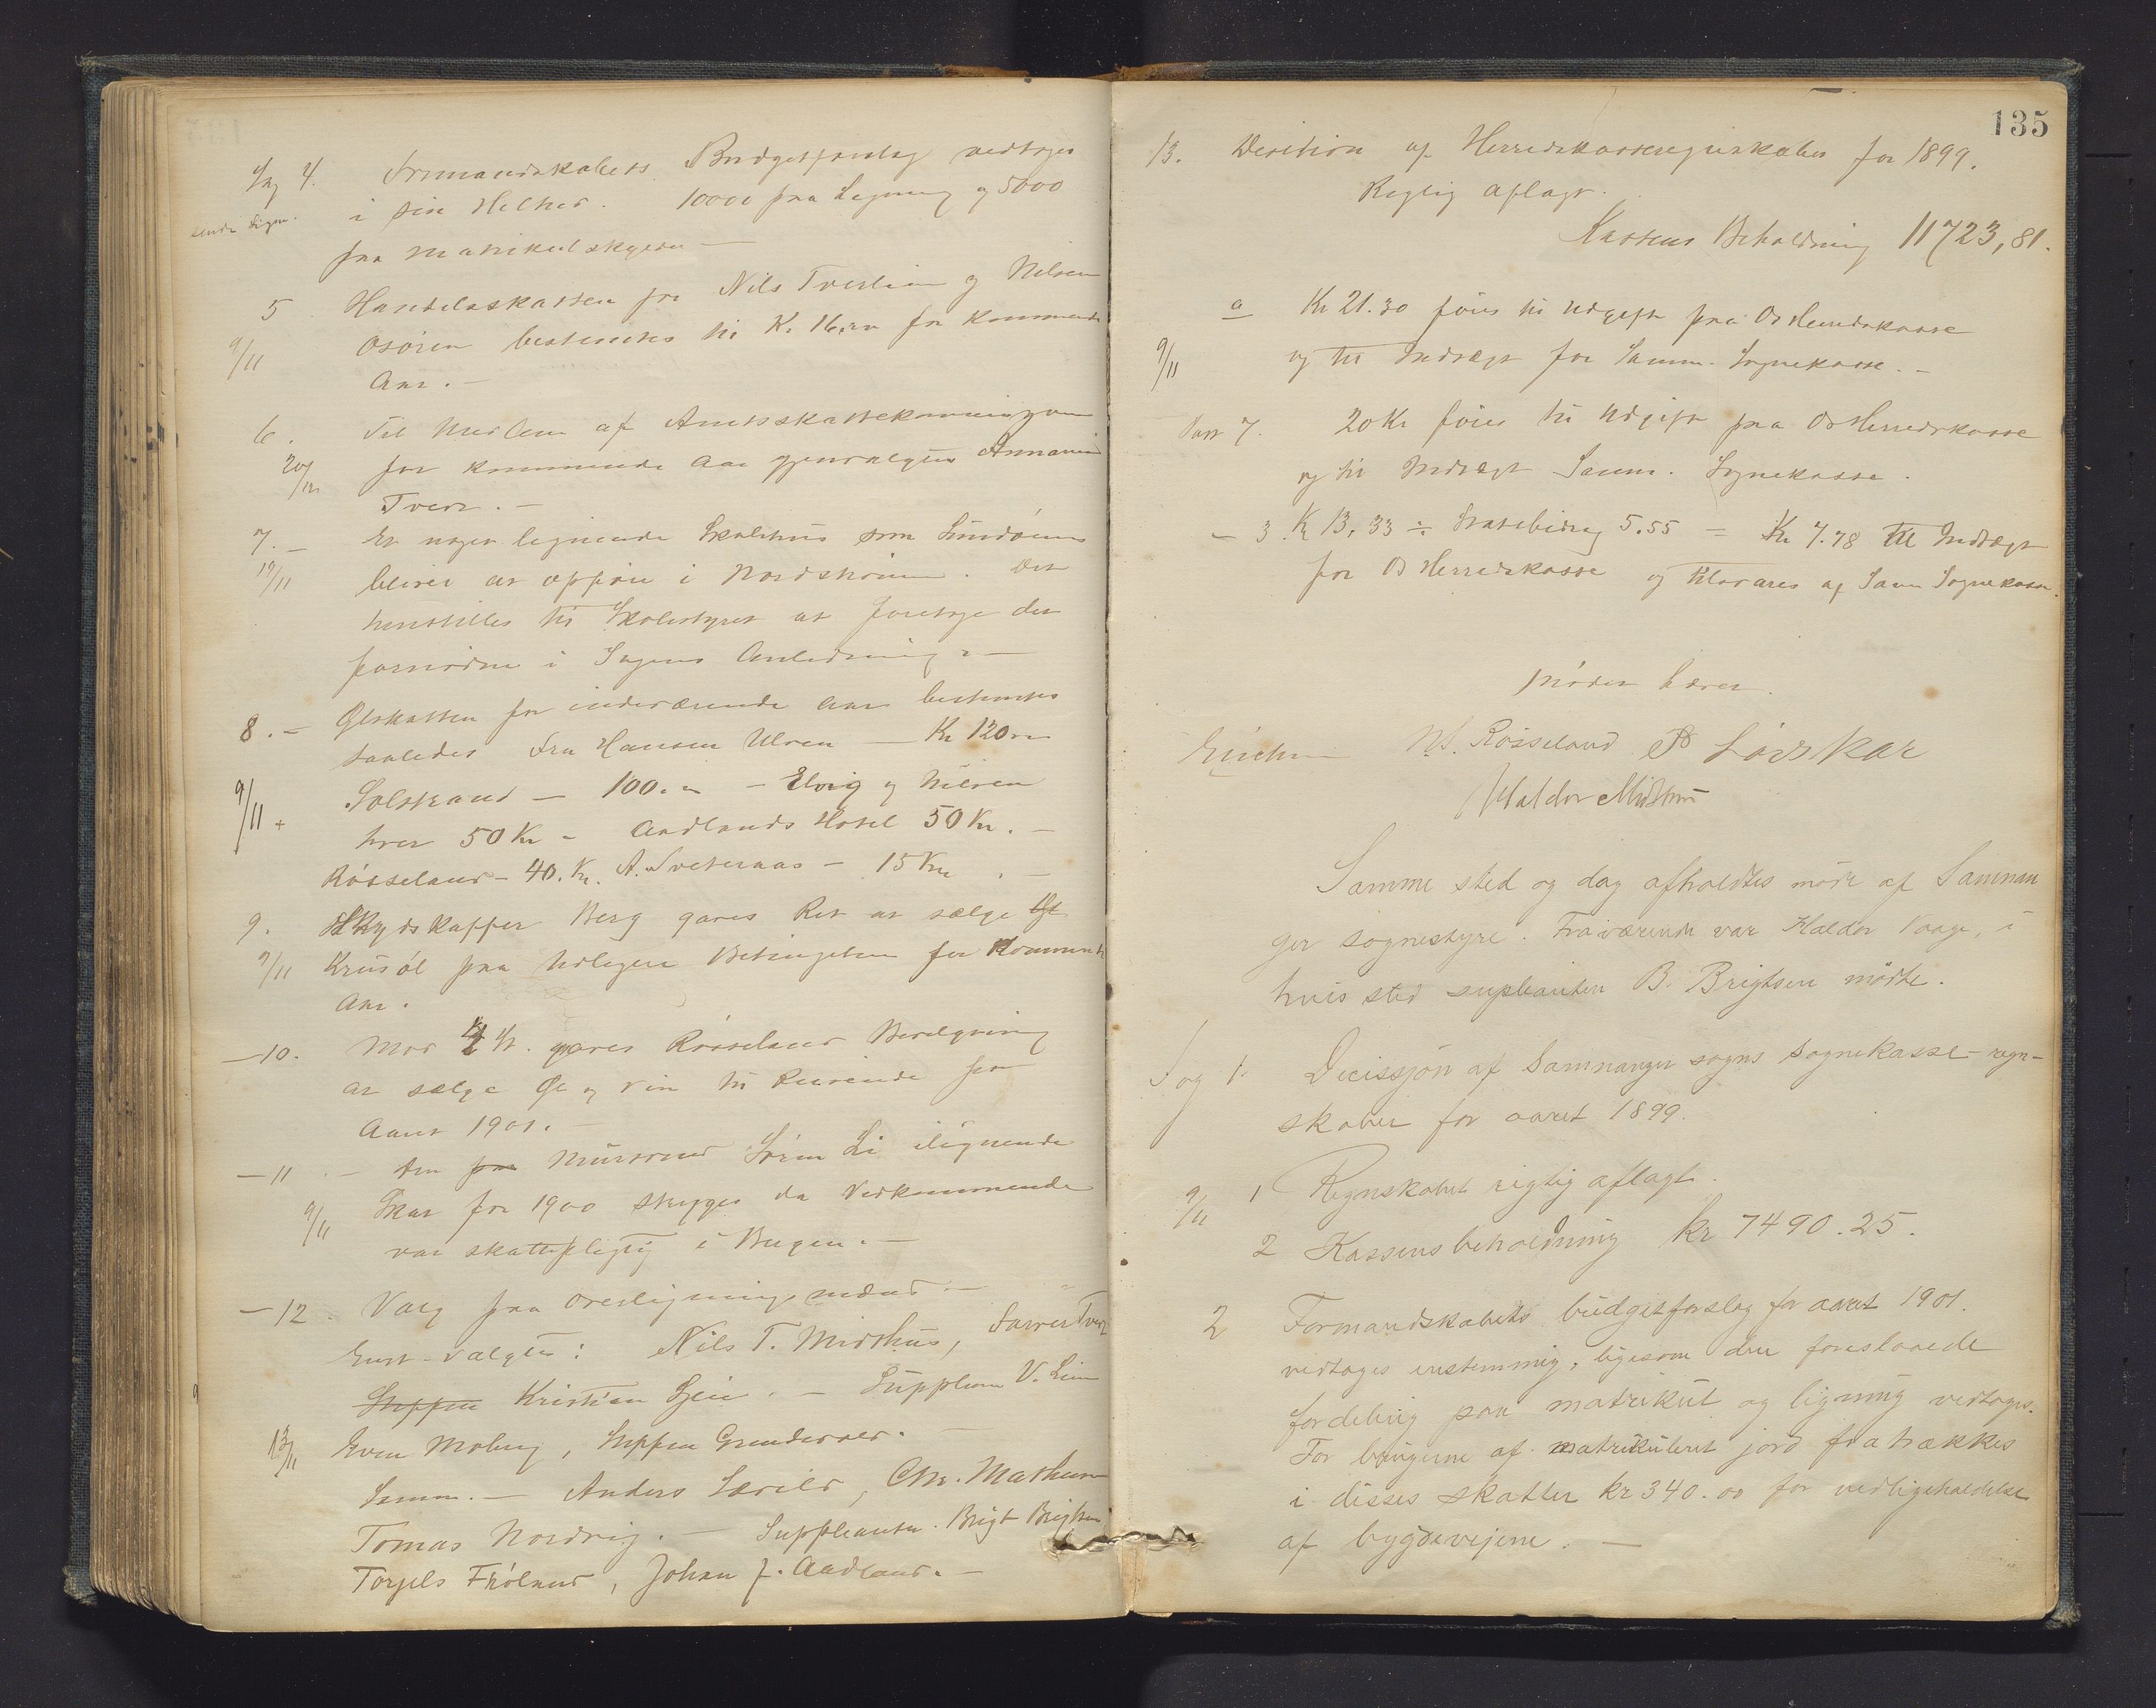 Sag 4. Formandskabets Budgetforslag vedtages
i sin Helhed. 10000 paa Ligning og 5000
sendt Lign.
paa Matrikulskylden —
5 Handelsskatten for Nils Tveiten og Nilsen
9/11 Osøren bestemtes til Kr. 16,00 for kommende
Aar. —
6. Til Medlem af Amtsskattekommissionen
20/12 for kommende Aar gjenvalgtes
Tveit. —
7. — Et noget lignende Skolehus som Sundøens
19/11 bliver at opføre i Nordstrønen. Det
henstilles til Skolestyret at foretage det
fornødne i Sagens Anledning. —
8. — Ølskatten for indeværende Aar bestemtes
saaledes Fru Hansen Ulven — Kr 120,00
9/11 + Solstrand — 100.00 — Elvig og Nilsen
hver 50 Kr — Aadlands Hotel 50 Kr. —
Røsseland — 40. Kr. A. Sveteraas — 15 Kr. —
9. Skydskaffer Berg gaves Ret at sælge Øl
9/11 Krusøl paa tidligere Betingelser for kommende
Aar.
— 10. Mod Kr. gaves Røsseland Bevilgning
at sælge Øl og Vin til Reisende for
Aaret 1901. —
— 11. — Den paa Murmand Søren Li ilignende
9/11 Skat for 1900 stryges da Vedkommende
var skattepligtig i Bergen. —
— 12. Valg paa Overligningsmænd. —
Enst. valgtes: Nils T. Midthus, Tveit
Steffen Kristian Lyeie. — Supplean V. Lien
13/11 Even Moberg, Steffen Grindevold. —
Samn. — Anders Sævild, Chr. Mathisen
Tomas Nordvig. — Suppleanter. Brigt Brigtsen
Torgils Frøland, Johan J. Aadland. —
135
13. Desition af Herredskasseregnskabet for 1899.
Rigtig aflagt.
Kassens Beholdning 11723,81.
a Kr 21.30 føres til Udgift paa Os Herredskasse
9/11 og til Indtægt for Samn. Sognekasse. —
Post 7. 20 Kr føres til Udgift paa Os Herredskasse
og til Indtægt Samn. Sognekasse.
— 3. Kr 13,33 ÷ Statsbidrag 5.55 = Kr 7.78 til Indtægt
for Os Herredskasse og tilsvares af Samn Sognekasse.
Mødet hævet.
Erichsen N. S. Røsseland P Lørskar
Haldor Midthun
Samme sted og dag afholdtes møde af Samnan
ger sognestyre. Fraværende var Haldor Vaage, i
hvis sted supleanten B. Brigtsen mødte.
Sag 1. Decissjon af Samnanger sogns sognekasse-regn-
skaber for aaret 1899.
9/11 1 Regnskabet rigtig aflagt.
2 Kassens beholdning kr 7490.25.
2 Formandskabets budgetforslag for aaret 1901.
vedtages enstemmig, ligesom den foreslaaede
fordeling paa matrikul og ligning vedtages.
For brugerne af matrikuleret jord fratrækkes
i disses skatter kr 340.00 for vedligeholdelse
af bygdevejene. —